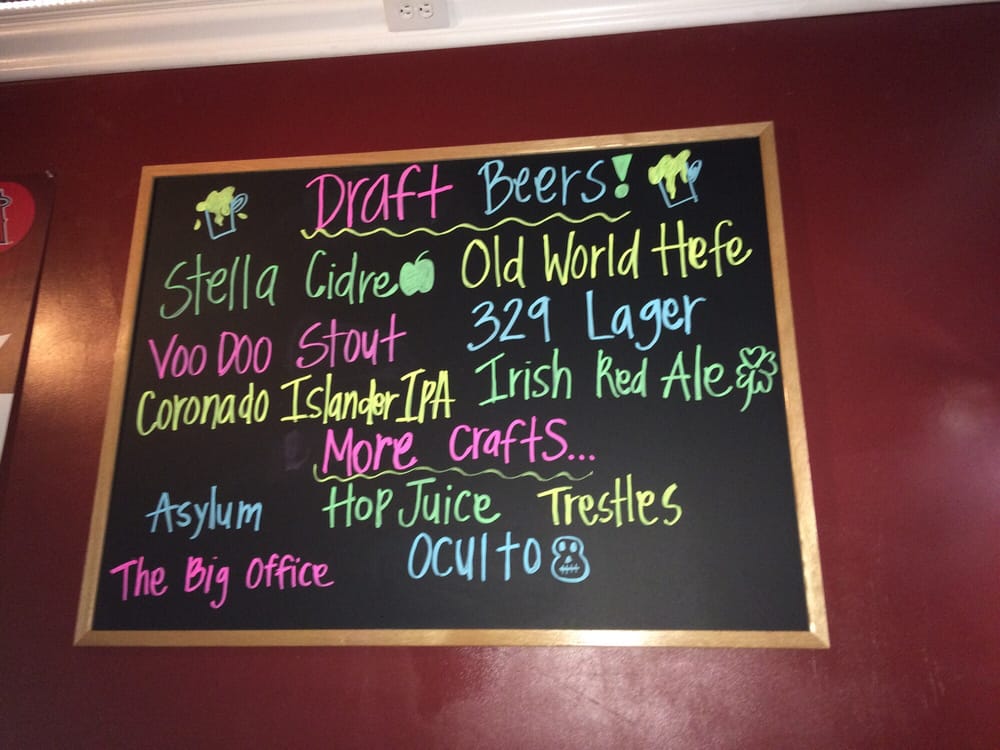 Draft Beers!
Stella Cidre Old World Hefe
Voo Doo Stout 329 Lager
Coronado Islander IPA Irish Red Ale
More Crafts...
Asylum Hop Juice Trestles
The Big Office Oculto